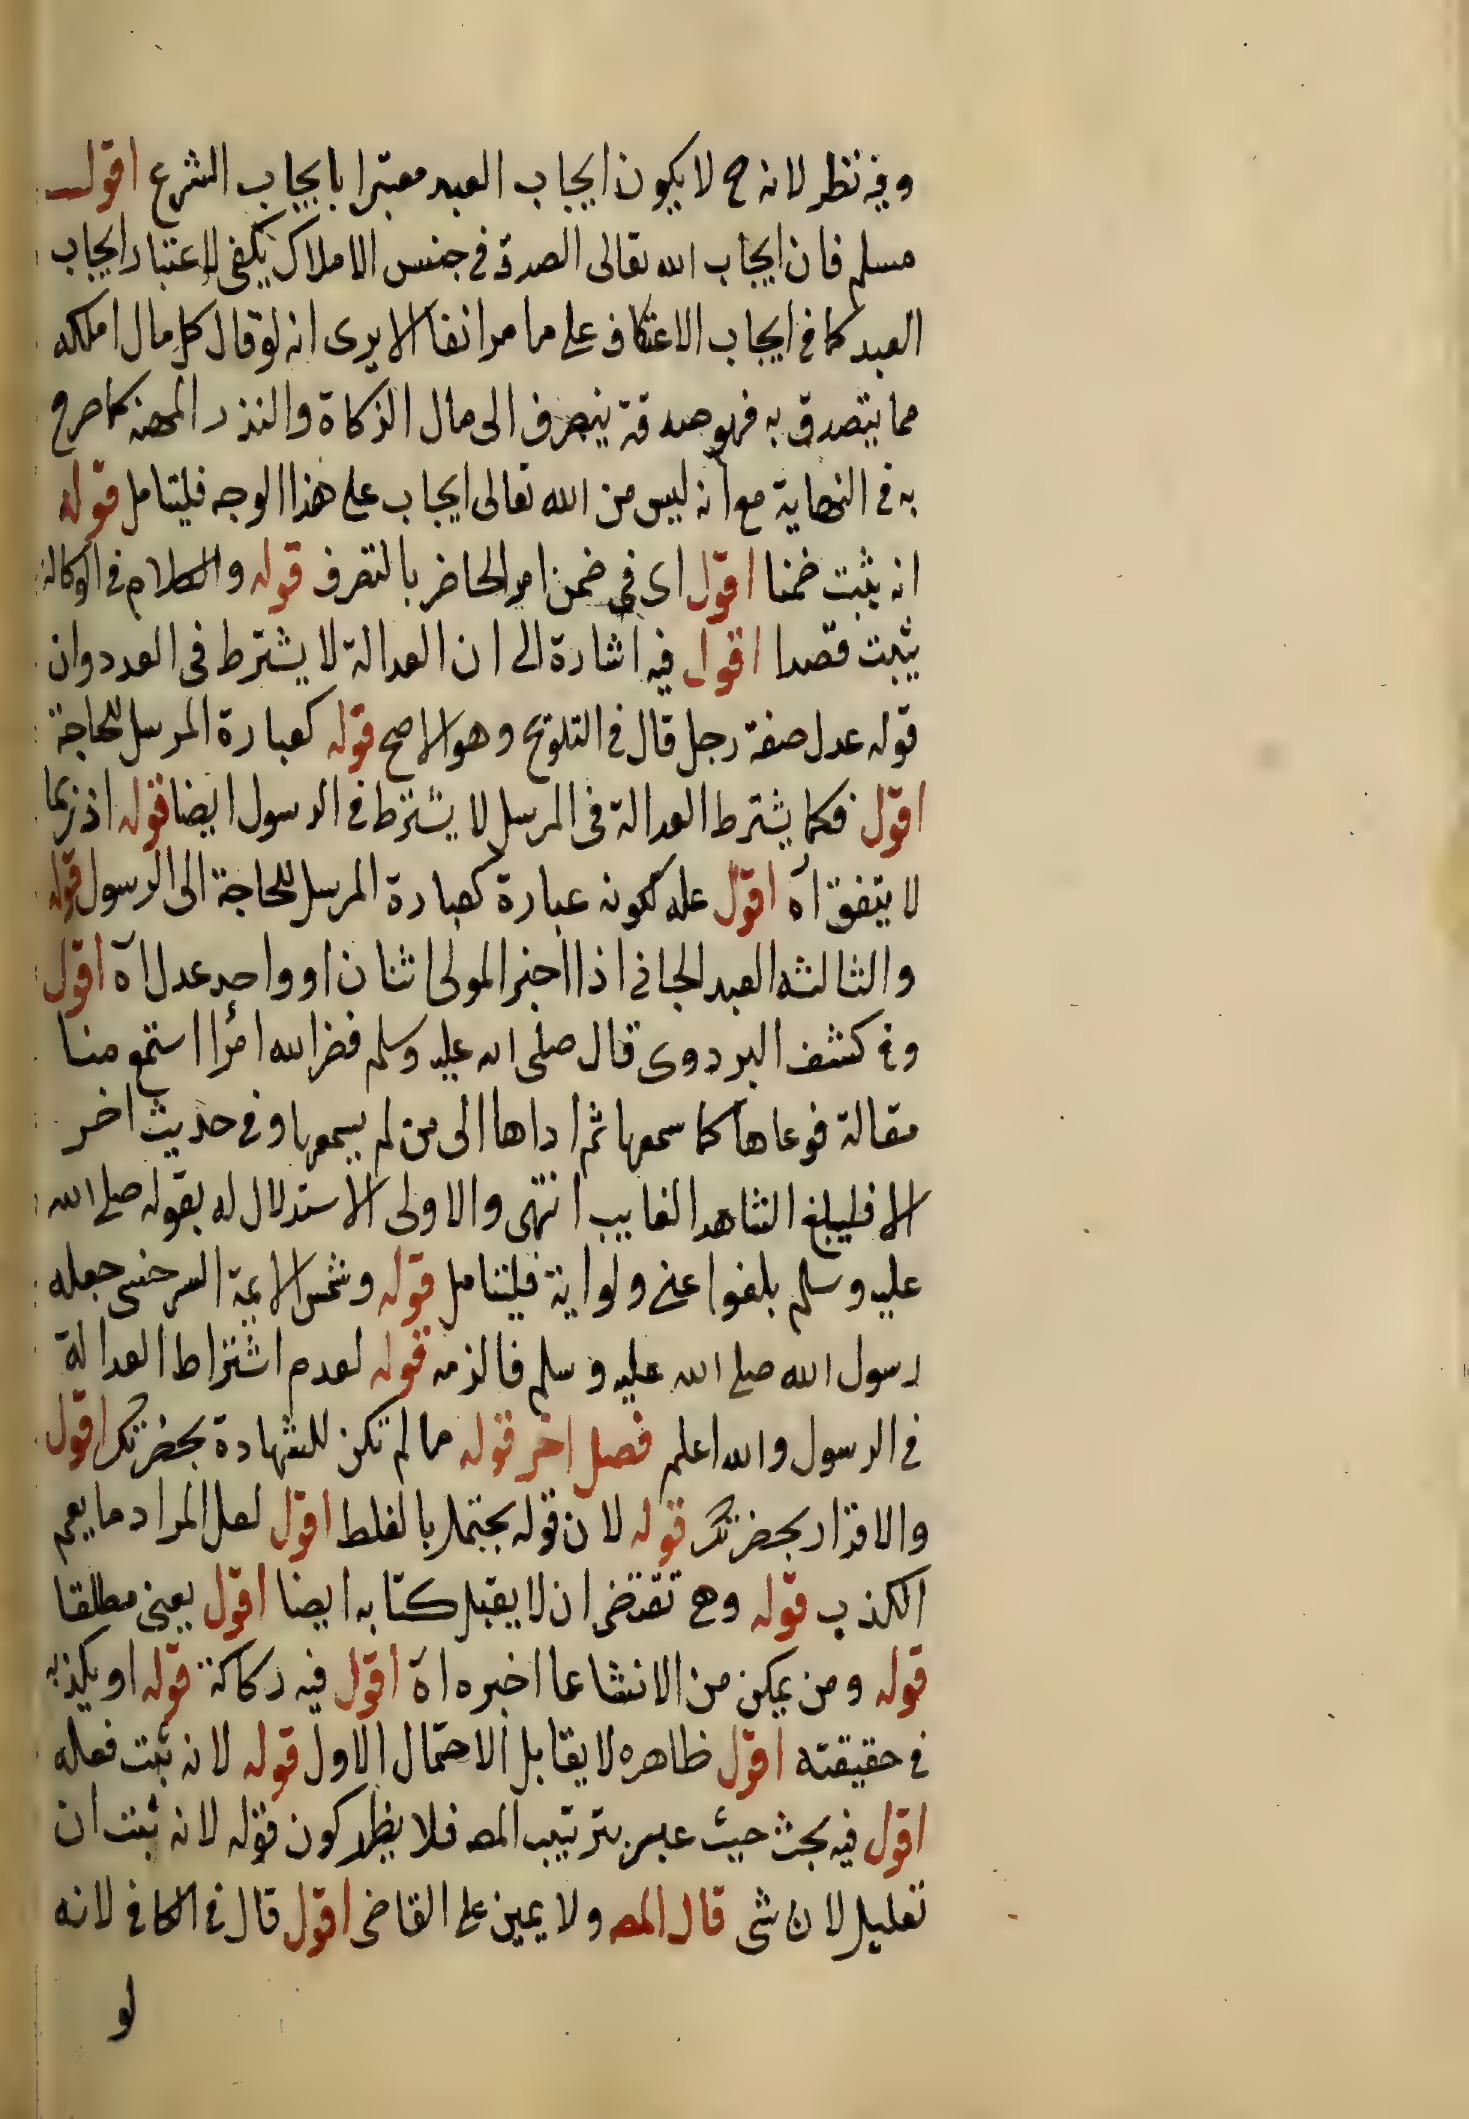 وفيه نظر لانه ح لا يكون ايجاب العبد معتبرا بايجاب الشرع اقول
مسلم فان ايجاب الله تعالى الصدقة في جنس الاملاك يكفى لاعتبار ايجاب
العبد كما في ايجاب الاعتكاف على ما مر انفا الا يرى انه لو قال كل مال املكه
مما يتصدق به فهو صدقة ينصرف الى مال الزكاة والنذر المحض كما صرح
به في النهاية مع انه ليس من الله تعالى ايجاب على هذا الوجه فليتامل قوله
انه يثبت ضمنا اقول اى في ضمن امر الحاضر بالتصرف قوله والكلام في الوكالة
يثبت قصدا اقول فيه اشارة الى ان العدالة لا يشترط في العدد وان
قوله عدل صفة رجل قال في التلويح وهو الاصح قوله كعبارة المرسل للحاجة
اقول فكما يشترط العدالة في المرسل لا يشترط في الرسول ايضا قوله اذ ربما
لا يتفق اه اقول علة لكونه عبارة كعبارة المرسل للحاجة الى الرسول قوله
والثالثه العبد الجاني اذا اخبر المولى اثنان او واحد عدل اه اقول
وفي كشف البزدوى قال صلى الله عليه وسلم فضر الله امرأ استمع منا
مقالة فوعاها كما سمعها ثم اداها الى من لم يسمعها وفي حديث اخر
الا فليبلغ الشاهد الغايب انتهى والاولى الاستدلال له بقوله صلى الله
عليه وسلم بلغوا عنى ولو اية فليتامل قوله وشمس الايمة السرخسى جعله
رسول الله صلى الله عليه وسلم فالزمه قوله لعدم اشتراط العدالة
في الرسول والله اعلم فصل اخر قوله ما لم تكن للشهادة بحضرتك اقول
والاقرار بحضرتك قوله لان قوله يحتمل بالغلط اقول لعل المراد ما يعم
الكذب قوله وهي تقتضى ان لا يقبل كتابه ايضا اقول يعنى مطلقا
قوله ومن يمكن من الانشا عما اخبره اه اقول فيه ركاكة قوله او يكذبه
في حقيقته اقول ظاهره لا يقابل الاحتمال الاول قوله لانه ثبت فعله
اقول فيه بحث حيث عبر بترتيب المص فلا يظهر كون قوله لانه ثبت ان
تعليل لان شى قال المص ولا يمين على القاضى اقول قال في الكافي لانه
لو